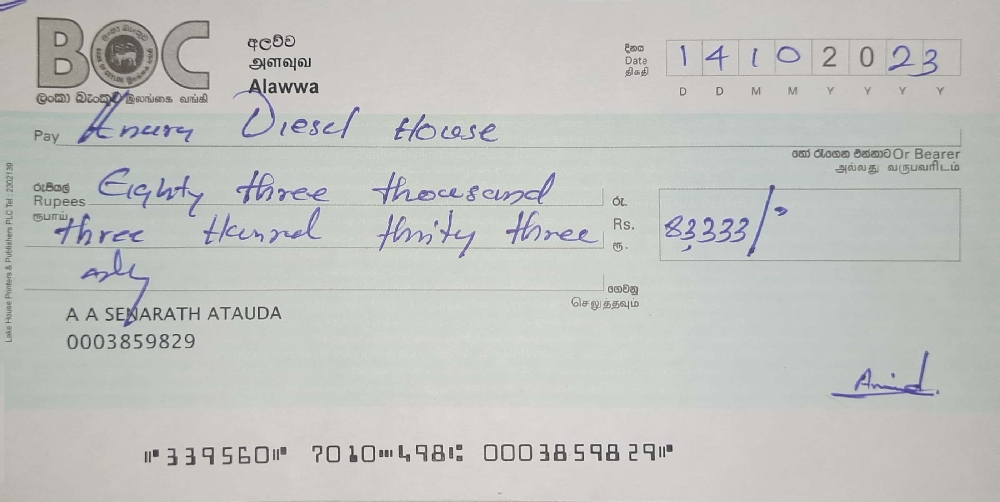 BOC
ලංකා බැංකුව இலங்கை வங்கி
අලව්ව
அளவுவ
Alawwa
දිනය
Date
திகதி
1 4 1 0 2 0 2 3
D D M M Y Y Y Y
Pay Anura Diesel House
හෝ රැගෙන එන්නාට Or Bearer
அல்லது வருபவரிடம்
රුපියල්
Rupees Eighty three thousand
ரூபாய் three Hunrd thrity three
only
රු.
Rs. 83,333/-
ரூ.
ගෙවනු
செலுத்தவும்
A A SENARATH ATAUDA
0003859829
Lake House Printers & Publishers PLC Tel : 2302139
⑈339560⑈ 7010⑉498⑆ 0003859829⑈